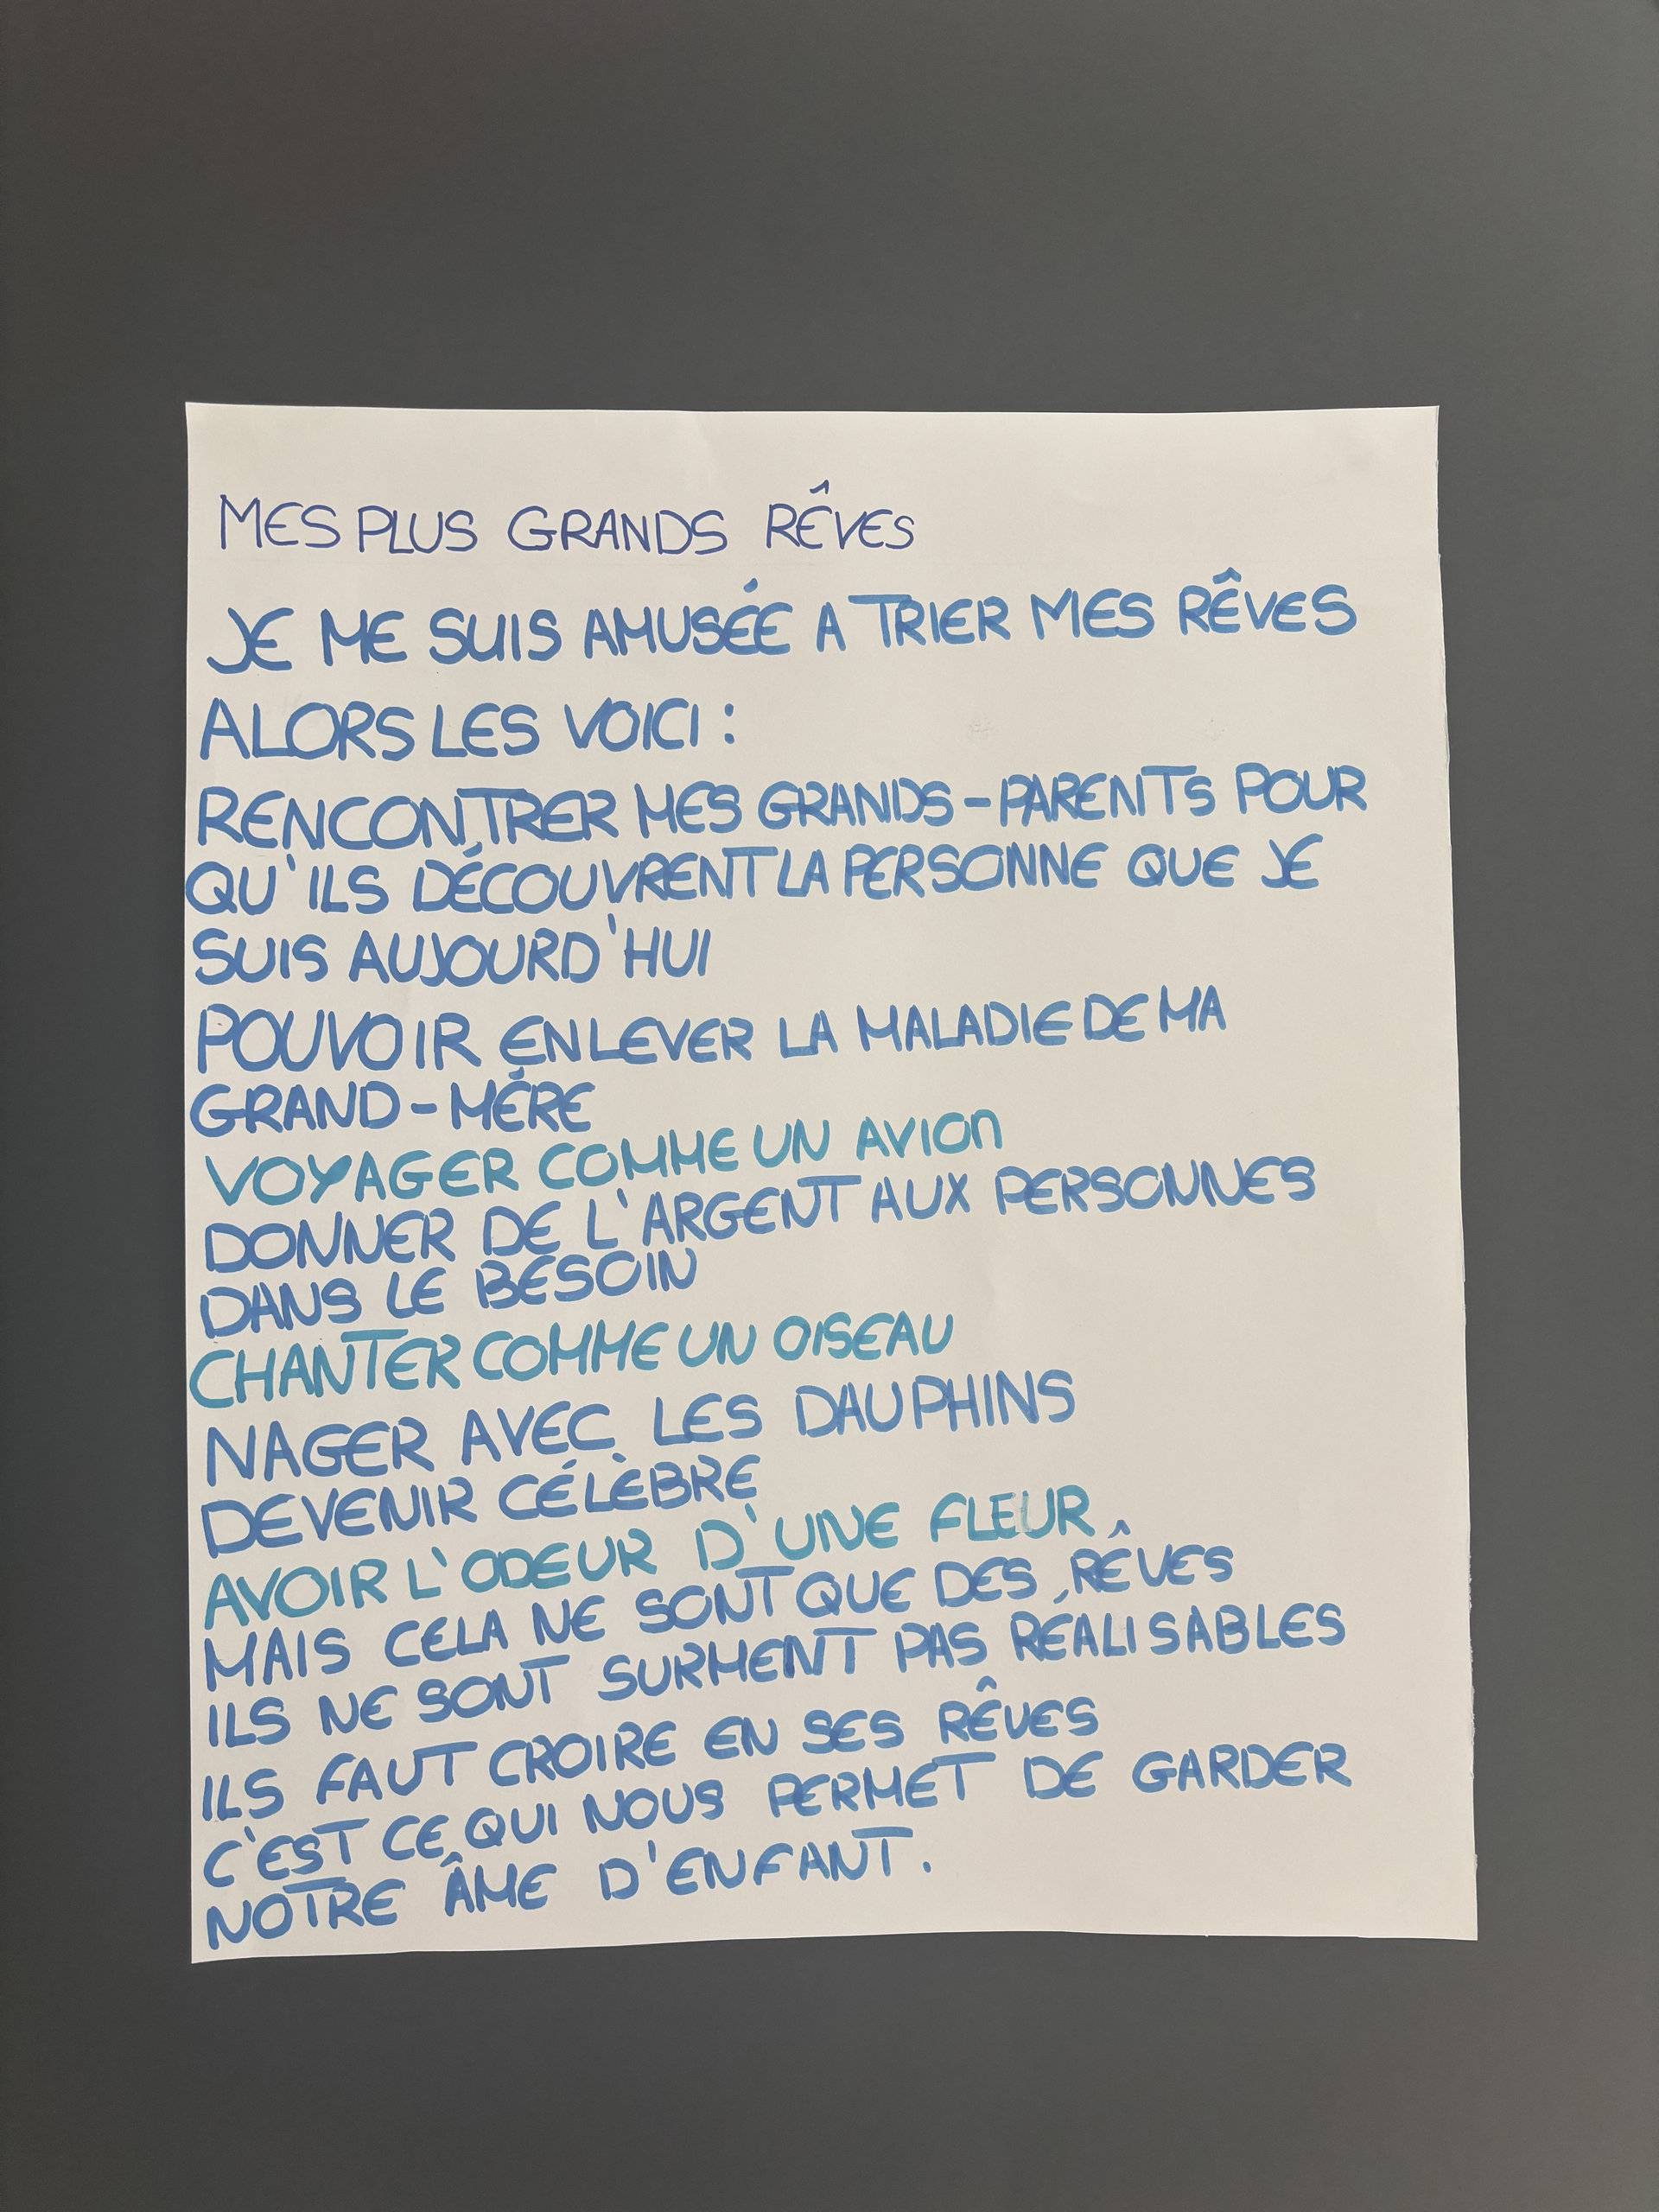 MES PLUS GRANDS RÊVES
JE ME SUIS AMUSÉE A TRIER MES RÊVES
ALORS LES VOICI :
RENCONTRER MES GRANDS-PARENTS POUR
QU'ILS DÉCOUVRENT LA PERSONNE QUE JE
SUIS AUJOURD'HUI
POUVOIR ENLEVER LA MALADIE DE MA
GRAND-MÉRE
VOYAGER COMME UN AVION
DONNER DE L'ARGENT AUX PERSONNES
DANS LE BESOIN
CHANTER COMME UN OISEAU
NAGER AVEC LES DAUPHINS
DEVENIR CÉLÈBRE
AVOIR L'ODEUR D'UNE FLEUR
MAIS CELA NE SONT QUE DES RÊVES
ILS NE SONT SURMENT PAS RÉALISABLES
ILS FAUT CROIRE EN SES RÊVES
C'EST CE QUI NOUS PERMET DE GARDER
NOTRE ÂME D'ENFANT.